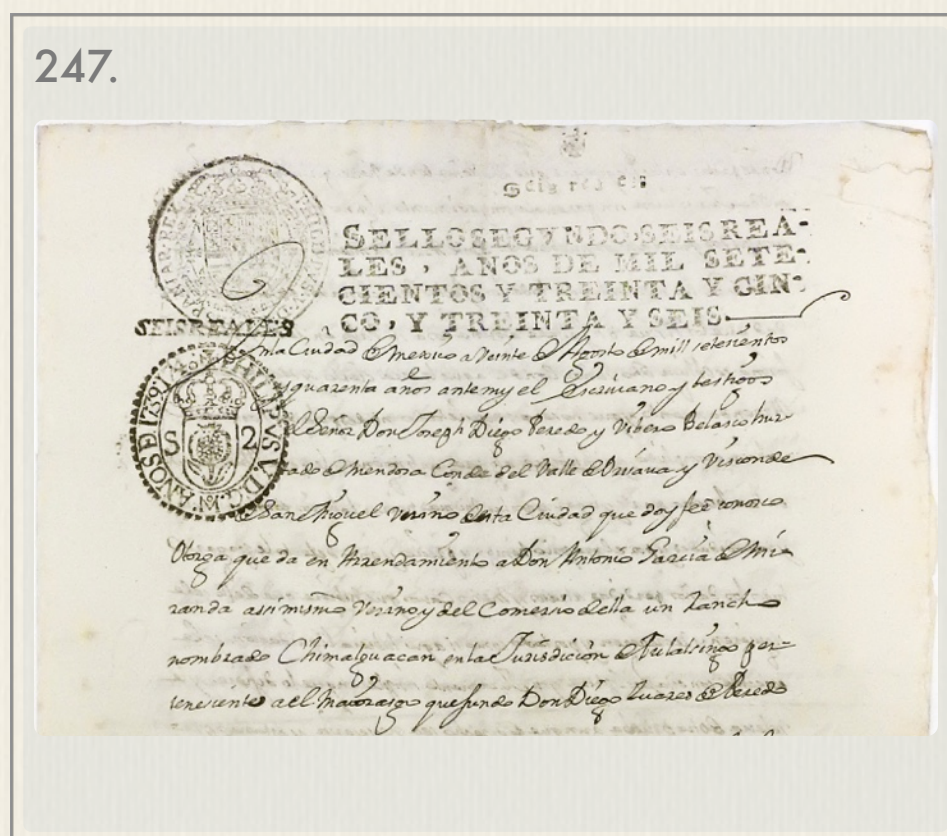 247.
Seis reales
SELLO SEGVNDO, SEIS REA-
LES, AÑOS DE MIL SETE-
CIENTOS Y TREINTA Y CIN-
CO, Y TREINTA Y SEIS
SEIS REALES
PHILIPVS V. D. G.
AÑOS DE 1739. Y 4
S 2
En la Ciudad de mexico a veinte de Agosto de mill setesientos
y quarenta años ante my el Escrivano y testigos
el Señor Don Joseph Diego Peredo y Vibero Belasco hur
tado de Mendosa Conde del Valle de Orisava y Visconde
de San Miguel vesino desta Ciudad que doy fee conosco
Otorga que da en Arrendamiento a Don Antonio Garcia de Mi
randa assimismo Vesino y del Comersio de ella un Rancho
nombrado Chimalguacan en la Jurisdicion de Tulalsingo per-
tenesiente a el Maiorasgo que fundo Don Diego Suares de Peredo